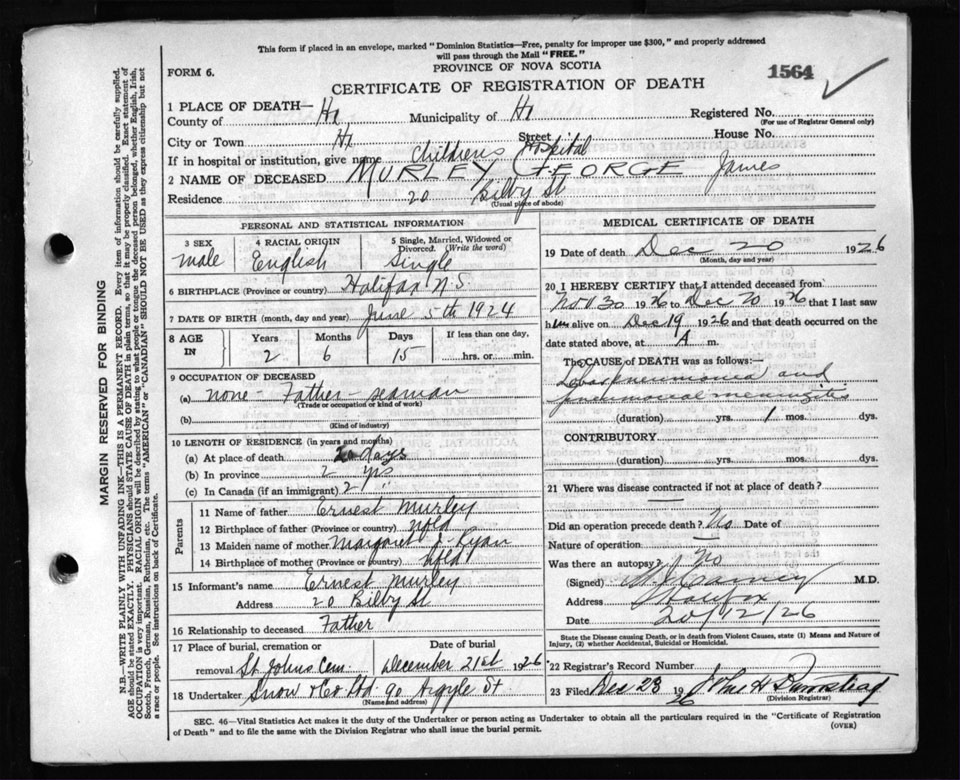 This form if placed in an envelope, marked "Dominion Statistics—Free, penalty for improper use $300," and properly addressed
will pass through the Mail "FREE."
FORM 6.
PROVINCE OF NOVA SCOTIA
1564
CERTIFICATE OF REGISTRATION OF DEATH
1 PLACE OF DEATH—
County of Hx Municipality of Hx Registered No.
(For use of Registrar General only)
City or Town Hx Street House No.
If in hospital or institution, give name Childrens Hospital
2 NAME OF DECEASED MURLEY GEORGE James
Residence 20 Bilby St
(Usual place of abode)
PERSONAL AND STATISTICAL INFORMATION
3 SEX 4 RACIAL ORIGIN 5 Single, Married, Widowed or Divorced. (Write the word)
male English Single
6 BIRTHPLACE (Province or country) Halifax N.S.
7 DATE OF BIRTH (month, day and year) June 5th 1924
8 AGE IN Years Months Days If less than one day,
2 6 15 hrs. or min.
9 OCCUPATION OF DECEASED
(a) none - Father - seaman
(Trade or occupation or kind of work)
(b)
(Kind of industry)
10 LENGTH OF RESIDENCE (in years and months)
(a) At place of death days
(b) In province 2 yrs
(c) In Canada (if an immigrant) 2 "
Parents
11 Name of father Ernest Murley
12 Birthplace of father (Province or country) Nfld
13 Maiden name of mother Margaret Ryan
14 Birthplace of mother (Province or country) Nfld
15 Informant's name Ernest Murley
Address 20 Bilby St
16 Relationship to deceased Father
17 Place of burial, cremation or Date of burial
removal St. Johns Cem. December 21st 1926
18 Undertaker Snow & Co Ltd 90 Argyle St
(Name and address)
MEDICAL CERTIFICATE OF DEATH
19 Date of death Dec 20 1926
(Month, day and year)
20 I HEREBY CERTIFY that I attended deceased from
Nov 30 1926 to Dec 20 1926 that I last saw
him alive on Dec 19 1926 and that death occurred on the
date stated above, at A m.
The CAUSE OF DEATH was as follows:—
Lobar Pneumonia and
pneumococcal meningitis
(duration) yrs. 1 mos. dys.
CONTRIBUTORY
(duration) yrs. mos. dys.
21 Where was disease contracted if not at place of death?
Did an operation precede death? No Date of
Nature of operation
Was there an autopsy?
(Signed) M.D.
Address Halifax
Date 20/12/26
State the Disease causing Death, or in death from Violent Causes, state (1) Means and Nature of
Injury, (2) whether Accidental, Suicidal or Homicidal.
22 Registrar's Record Number
23 Filed Dec 23 1926 John H
(Division Registrar)
SEC. 46—Vital Statistics Act makes it the duty of the Undertaker or person acting as Undertaker to obtain all the particulars required in the "Certificate of Registration
of Death" and to file the same with the Division Registrar who shall issue the burial permit.
(OVER)
MARGIN RESERVED FOR BINDING
N.B.—WRITE PLAINLY WITH UNFADING INK—THIS IS A PERMANENT RECORD. Every item of information should be carefully supplied.
AGE should be stated EXACTLY. PHYSICIANS should STATE CAUSE OF DEATH in plain terms, so that it may be properly classified. Exact statement of
OCCUPATION is very important. RACIAL ORIGIN will be described by stating to what people or tongue the deceased person belonged, whether English, Irish,
Scotch, French, German, Russian, Ruthenian, etc. The terms "AMERICAN" or "CANADIAN" SHOULD NOT BE USED as they express citizenship but not
a race or people. See instructions on back of Certificate.